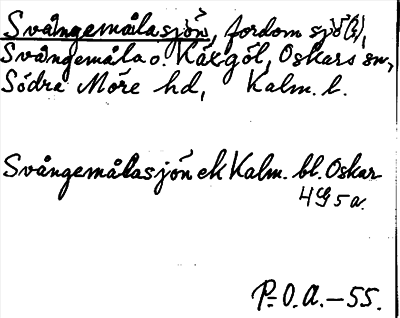 Svångemålasjön, fordom sjö(?),
Svångemåla o. Käxgöl, Oskars sn,
Södra Möre hd, Kalm. l.
Svångemålasjön ek Kalm. bl. Oskar
4G5a.
P.O.A.-55.